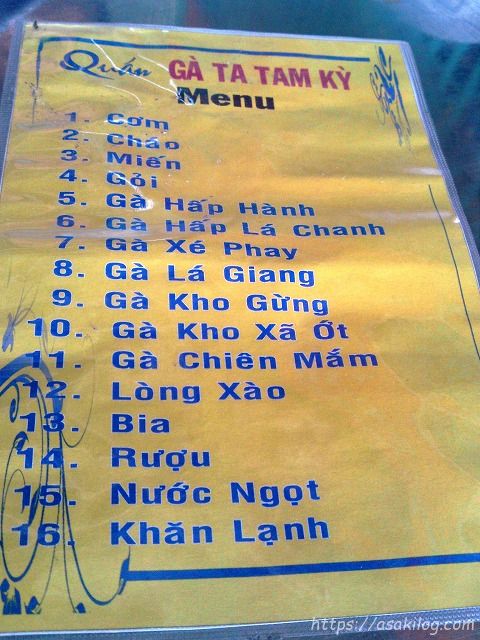 Quán GÀ TA TAM KỲ
Menu
1. Cơm
2. Cháo
3. Miến
4. Gỏi
5. Gà Hấp Hành
6. Gà Hấp Lá Chanh
7. Gà Xé Phay
8. Gà Lá Giang
9. Gà Kho Gừng
10. Gà Kho Xã Ớt
11. Gà Chiên Mắm
12. Lòng Xào
13. Bia
14. Rượu
15. Nước Ngọt
16. Khăn Lạnh
https://asakilog.com